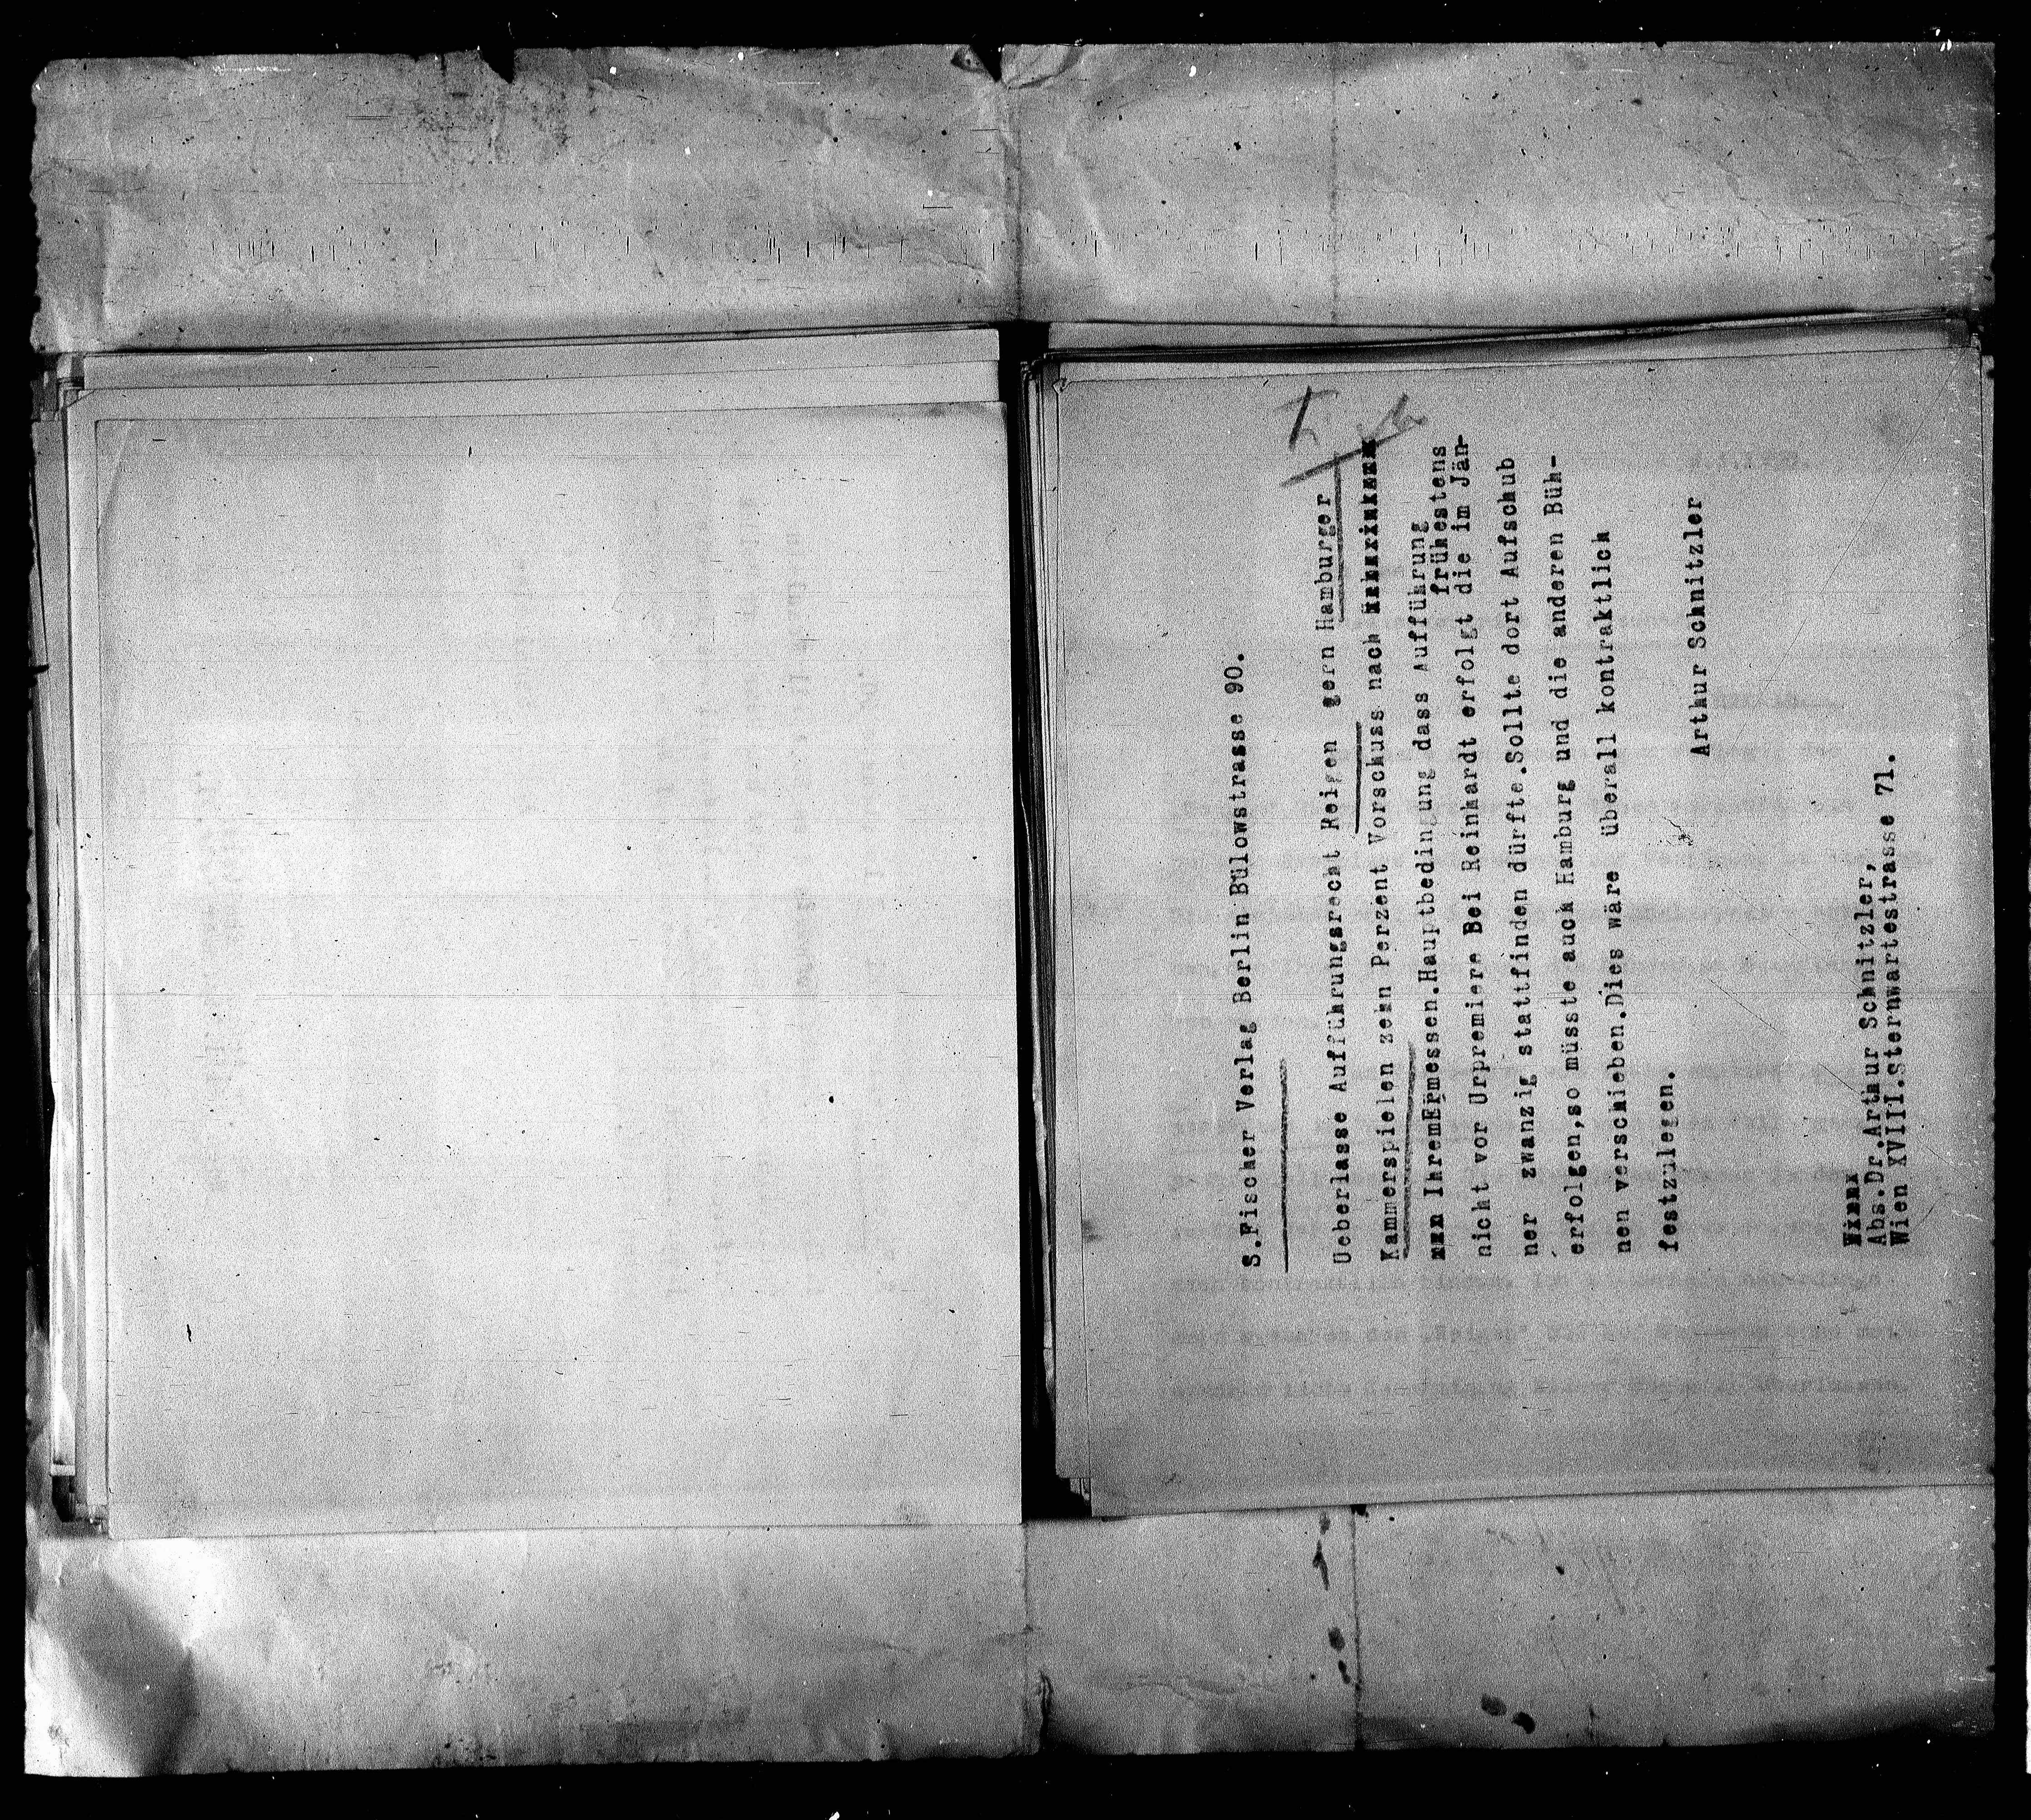 S.Fischer Verlag Berlin Bülowstrasse 90.
Ueberlasse Aufführungsrecht Reigen gern Hamburger
Kammerspielen zehn Perzent Vorschuss nach
IhremErmessen.Hauptbedingung dass Aufführung
frühestens
nicht vor Urpremiere Bei Reinhardt erfolgt die im Jän-
ner zwanzig stattfinden dürfte.Sollte dort Aufschub
erfolgen,so müsste auch Hamburg und die anderen Büh-
nen verschieben.Dies wäre überall kontraktlich
festzulegen.
Arthur Schnitzler
Abs.Dr.Arthur Schnitzler,
Wien XVIII.Sternwartestrasse 71.